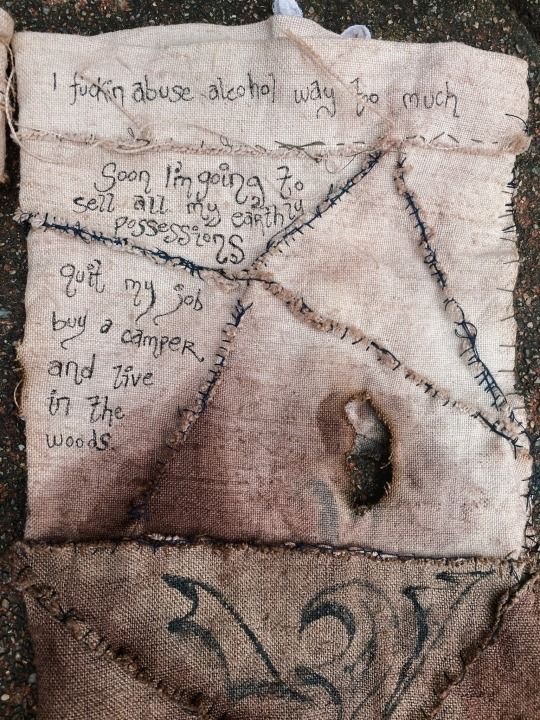 I fuckin abuse alcohol way to much
Soon I'm going to
sell all my earthly
possessions
quit my job
buy a camper
and live
in the
woods.